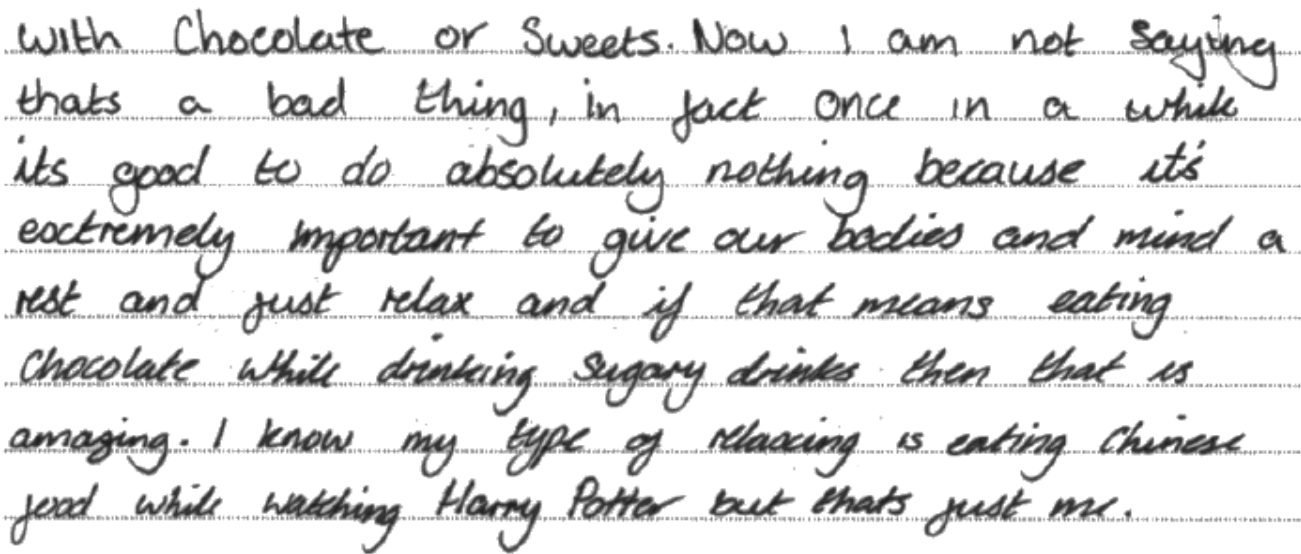 with Chocolate or Sweets. Now I am not saying
thats a bad thing, in fact once in a while
its good to do absolutely nothing because it's
extremely important to give our bodies and mind a
rest and just relax and if that means eating
chocolate while drinking sugary drinks then that is
amazing. I know my type of relaxing is eating Chinese
food while watching Harry Potter but thats just me.